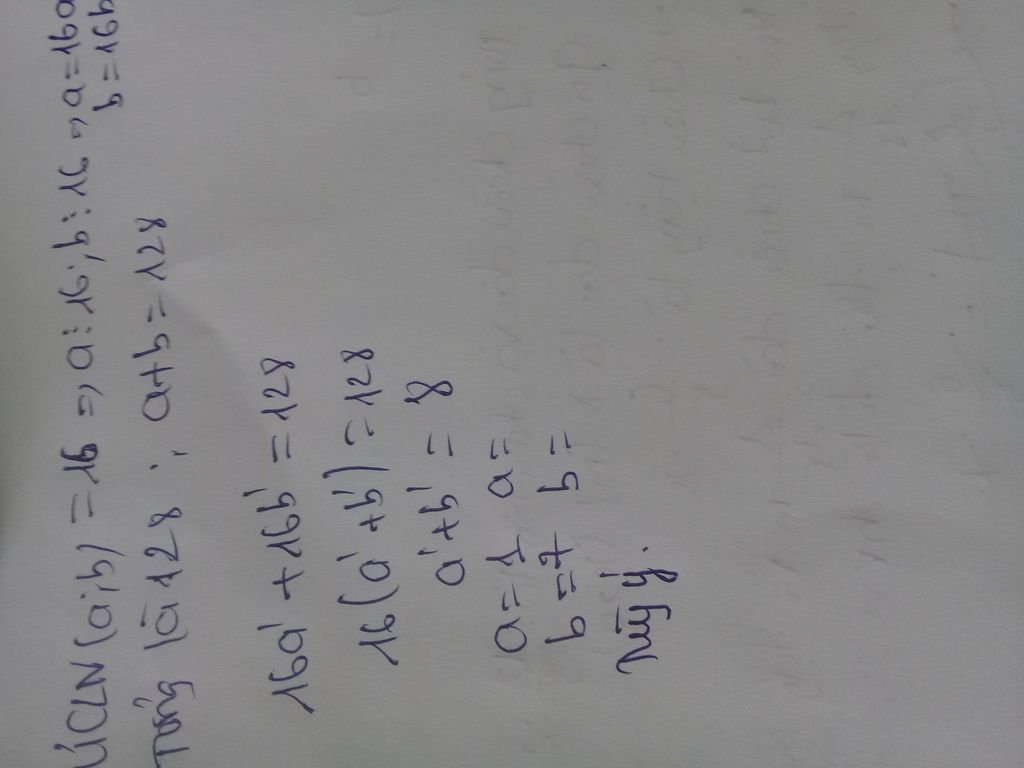 ƯCLN (a;b) = 16 => a ⋮ 16 ; b ⋮ 16 => a = 16a
b = 16b
Tổng là 128 ; a+b = 128
16a' + 16b' = 128
16(a' + b') = 128
a' + b' = 8
a = 1 a =
b = 7 b =
Tùy ý.